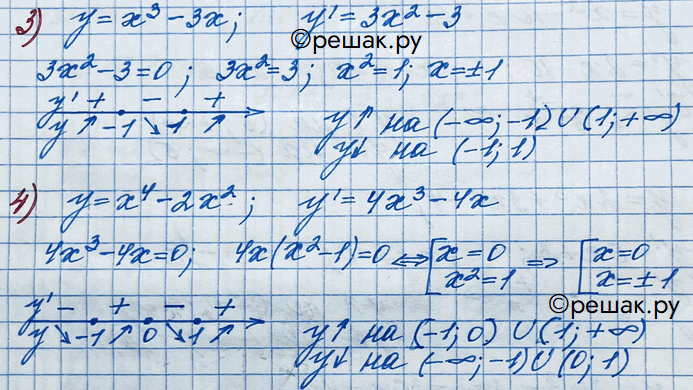 3) y = x³ - 3x; y' = 3x² - 3
©решак.ру
3x² - 3 = 0; 3x² = 3; x² = 1; x = ±1
y' + - +
y ↗ -1 ↘ 1 ↗
y↑ на (-∞; -1) ∪ (1; +∞)
y↓ на (-1; 1)
4) y = x⁴ - 2x²; y' = 4x³ - 4x
4x³ - 4x = 0; 4x(x² - 1) = 0 ⇔ [x = 0 ⇒ [x = 0
x² = 1 x = ±1
©решак.ру
y' - + - +
y ↘ -1 ↗ 0 ↘ 1 ↗
y↑ на (-1; 0) ∪ (1; +∞)
y↓ на (-∞; -1) ∪ (0; 1)